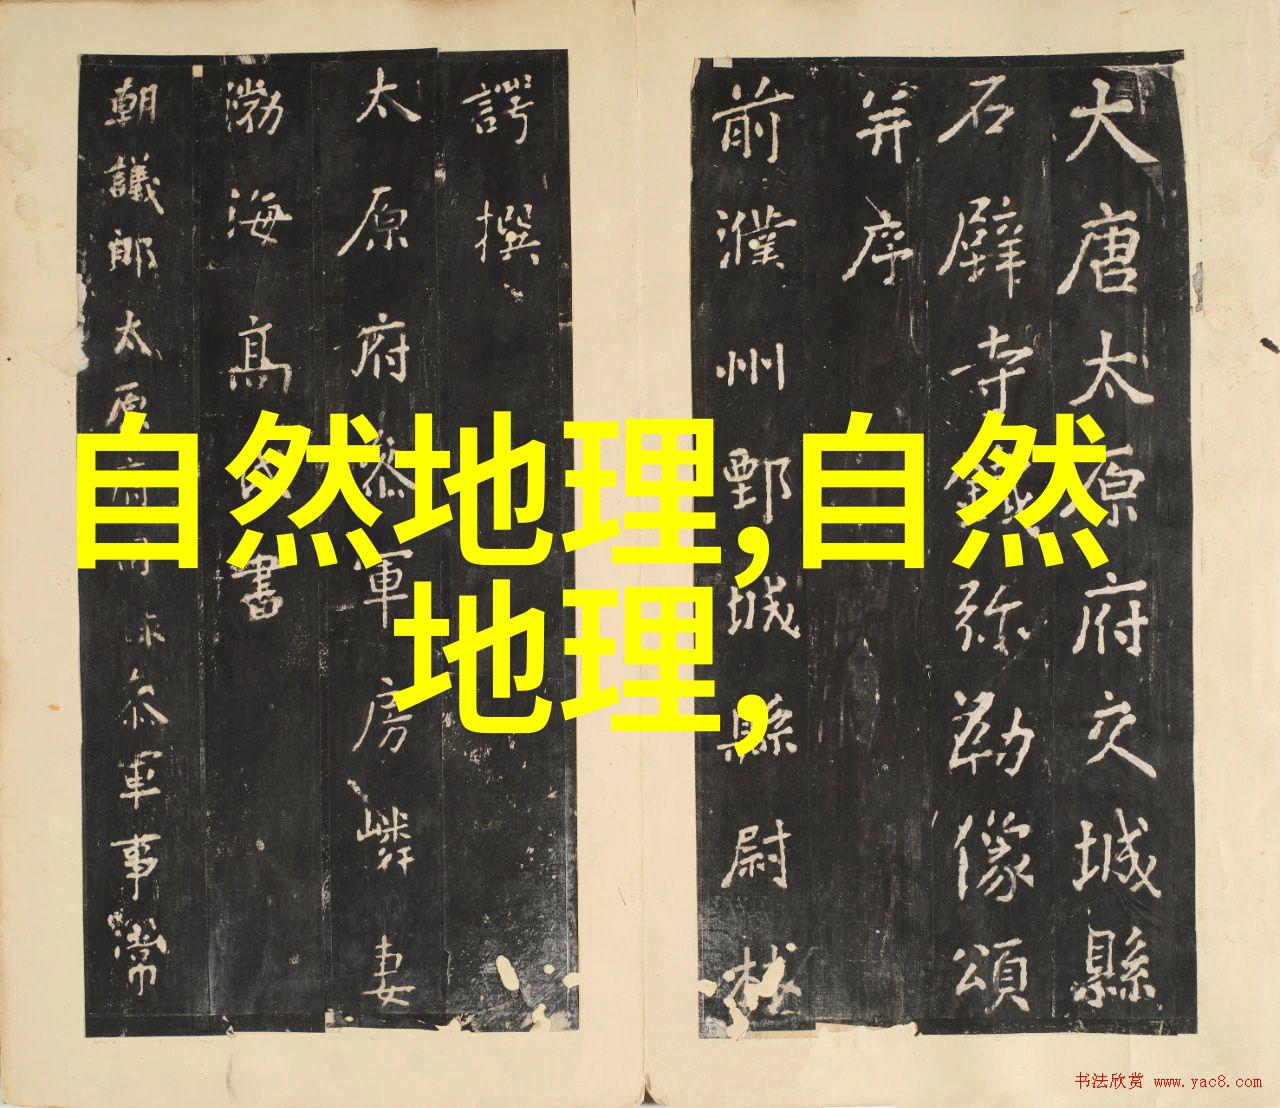 大唐太原府交城縣
石壁寺鐵弥勒像頌
并序
前濮州鄄城縣尉林
諤撰
太原府叅軍房嶙妻
渤海高氏書
朝議郎太原府司 叅軍事常
自然地理,自然
地理,
书法欣赏 www.yac8.com